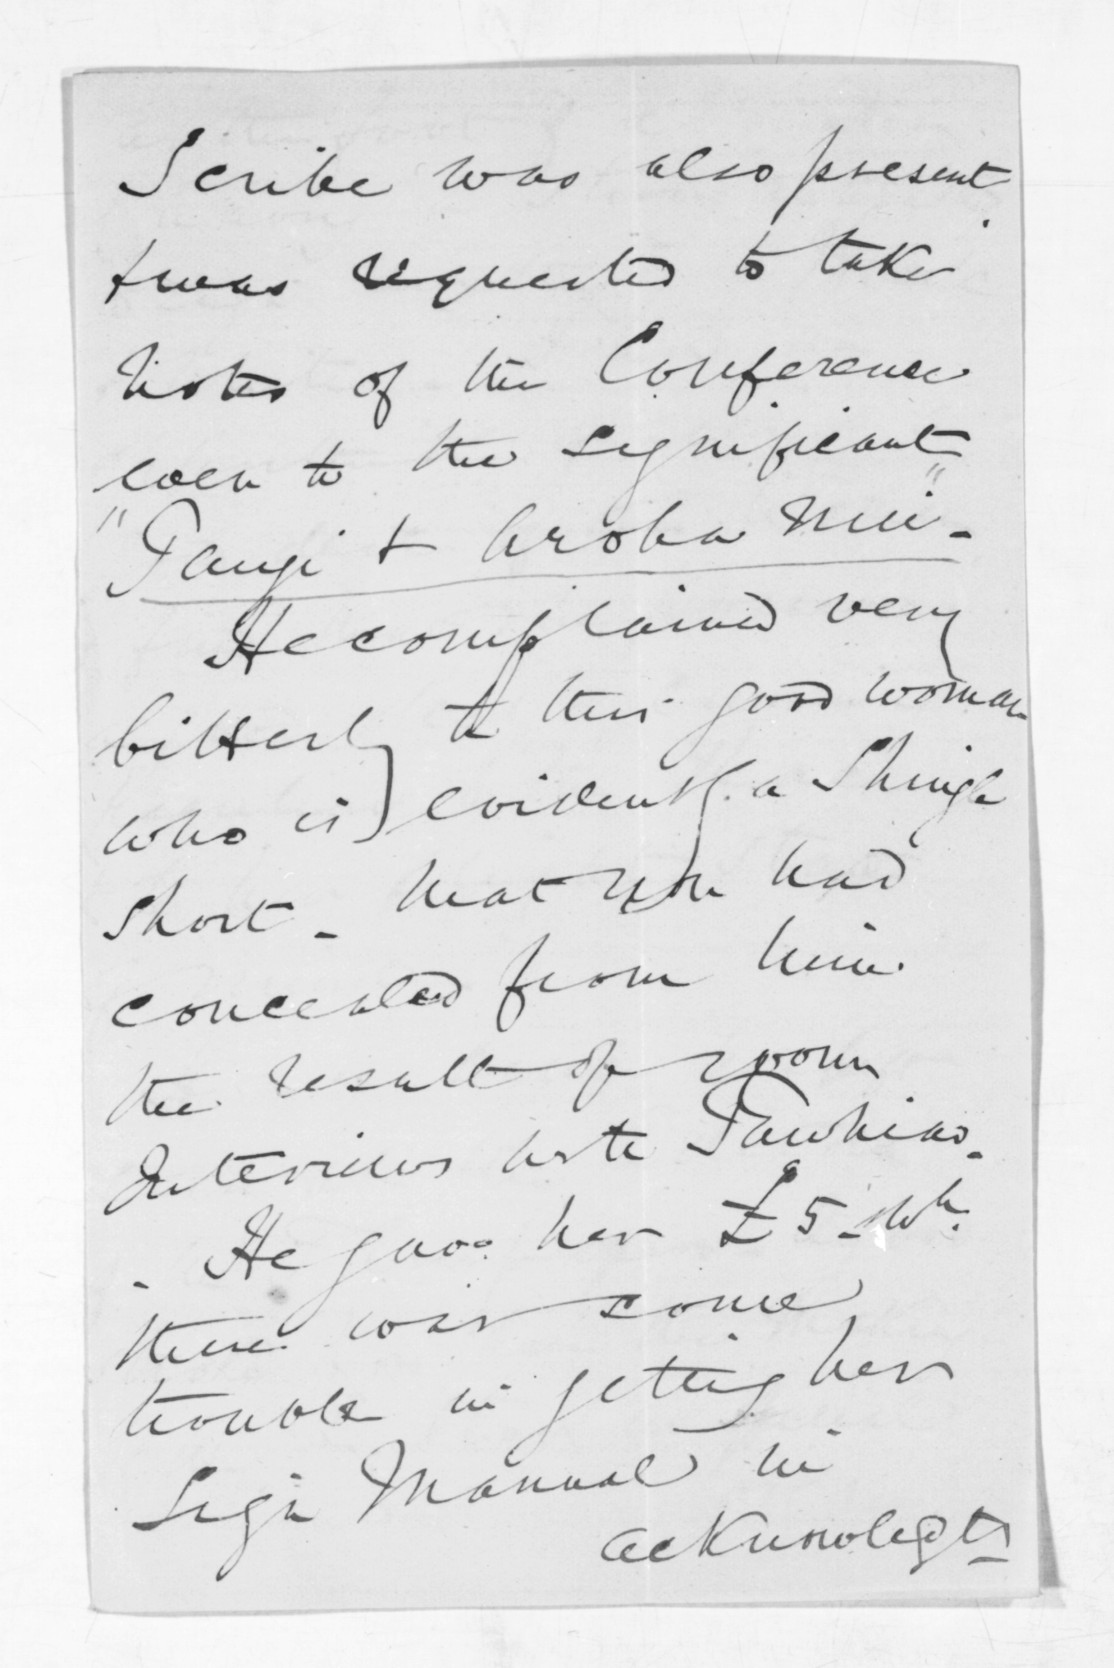 Scribe was also present
& was requested to take
Notes of the Conference
even to the significant
"Tangi & Aroha Nui" -
He complained very
bitterly to this good woman
who is) evidently a Shingle
short - that you had
concealed from him
the result of your
Interviews with Tawhiao -
- He gave her £5 -
there was some
trouble in getting her
Sign Manual in
acknowledgt